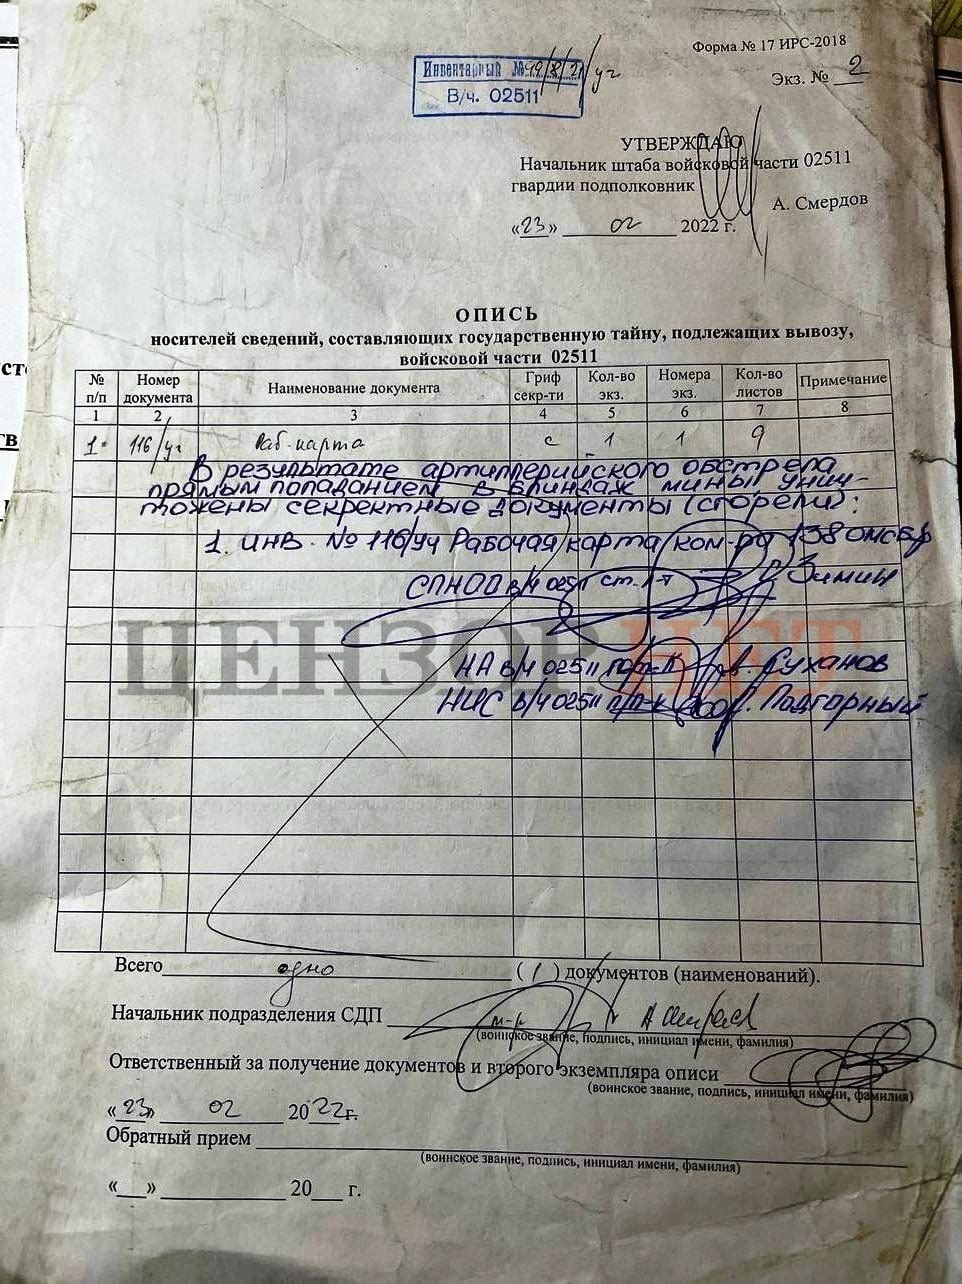 Форма № 17 ИРС-2018
Экз. № 2
Инвентарный №
В/ч. 02511
УТВЕРЖДАЮ
Начальник штаба войсковой части 02511
гвардии подполковник
А. Смердов
«23» 02 2022 г.
ОПИСЬ
носителей сведений, составляющих государственную тайну, подлежащих вывозу,
войсковой части 02511
№ п/п Номер документа Наименование документа Гриф секр-ти Кол-во экз. Номера экз. Кол-во листов Примечание
1 2 3 4 5 6 7 8
1. 116/уч Раб. карта с 1 1 9
В результате артиллерийского обстрела
прямым попаданием в блиндаж мины унич-
тожены секретные документы (сгорели):
1. инв. № 116/уч Рабочая карта ком-ра 138 омсбр
СПНОП в/ч 02511 ст. л-т Зимин
НА в/ч 02511 Суханов
НИС в/ч 02511 п/п-к Подгорный
ЦЕНЗОР.НЕТ
Всего одно (1) документов (наименований).
Начальник подразделения СДП
(воинское звание, подпись, инициал имени, фамилия)
Ответственный за получение документов и второго экземпляра описи
(воинское звание, подпись, инициал имени, фамилия)
«23» 02 2022 г.
Обратный прием
(воинское звание, подпись, инициал имени, фамилия)
«__» ____________ 20___ г.